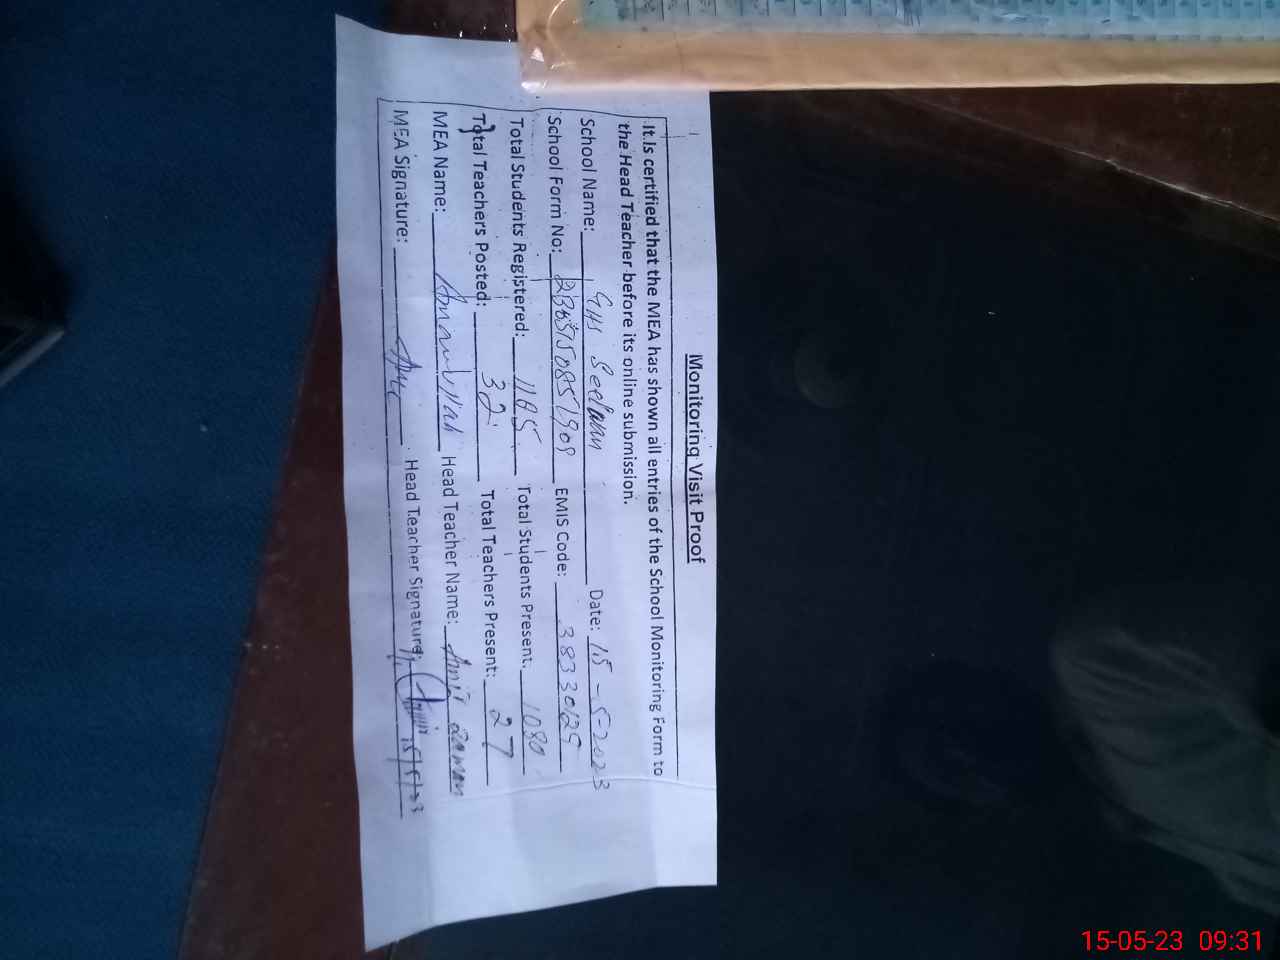 Monitoring Visit Proof
It Is certified that the MEA has shown all entries of the School Monitoring Form to
the Head Teacher before its online submission.
School Name: GHS Date: 15-5-2023
School Form No: EMIS Code: 38330129
Total Students Registered: Total Students Present. 1080
Total Teachers Posted: 32 Total Teachers Present: 27
MEA Name: Head Teacher Name: Amir zaman
MEA Signature: Head Teacher Signature: 15/5/23
15-05-23 09:31